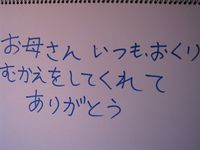 お母さん いつも、おくり
むかえをしてくれて
ありがとう